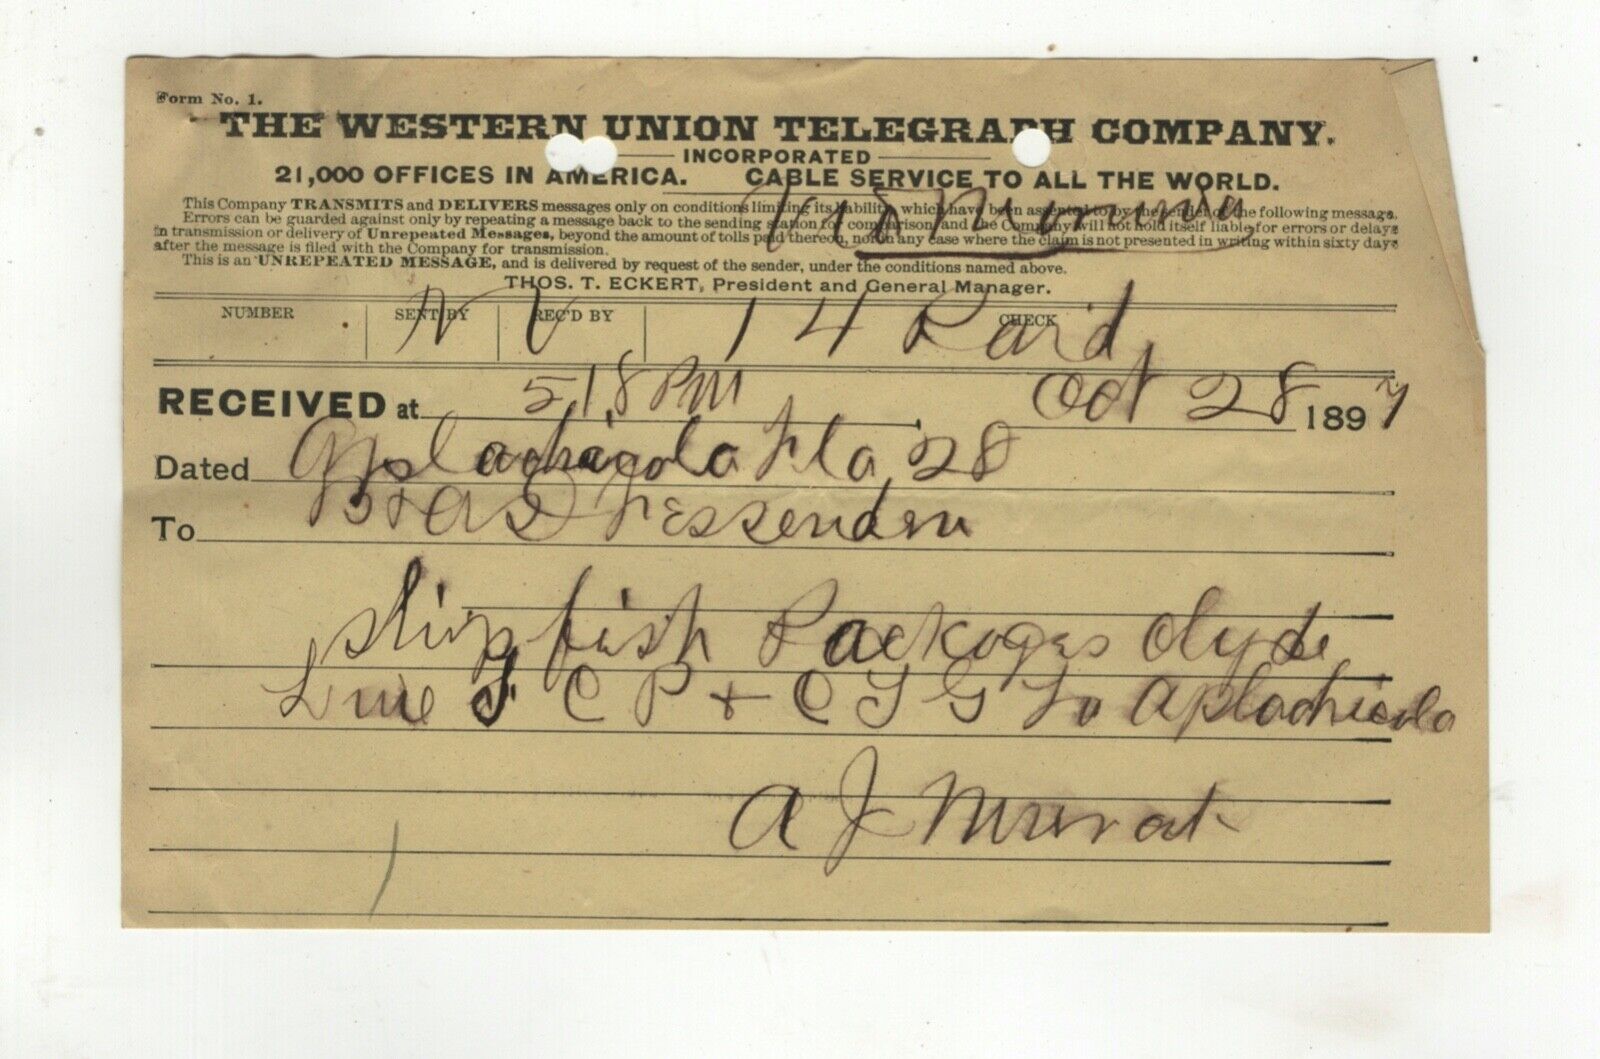 Form No. 1.
THE WESTERN UNION TELEGRAPH COMPANY.
INCORPORATED
21,000 OFFICES IN AMERICA. CABLE SERVICE TO ALL THE WORLD.
This Company TRANSMITS and DELIVERS messages only on conditions limiting its liability, which have been assented to by the sender of the following message.
Errors can be guarded against only by repeating a message back to the sending station for comparison, and the Company will not hold itself liable for errors or delays
in transmission or delivery of Unrepeated Messages, beyond the amount of tolls paid thereon, nor in any case where the claim is not presented in writing within sixty days
after the message is filed with the Company for transmission.
This is an UNREPEATED MESSAGE, and is delivered by request of the sender, under the conditions named above.
THOS. T. ECKERT, President and General Manager.
NUMBER SENT BY REC'D BY CHECK
N V 14 Paid
RECEIVED at 518 PM Oct 28 1897
Dated Aplachicola Fla 28
To Fessenden
Ship fish Packages Clyde
Line F C P + C T G To Aplachicola
A J Murat